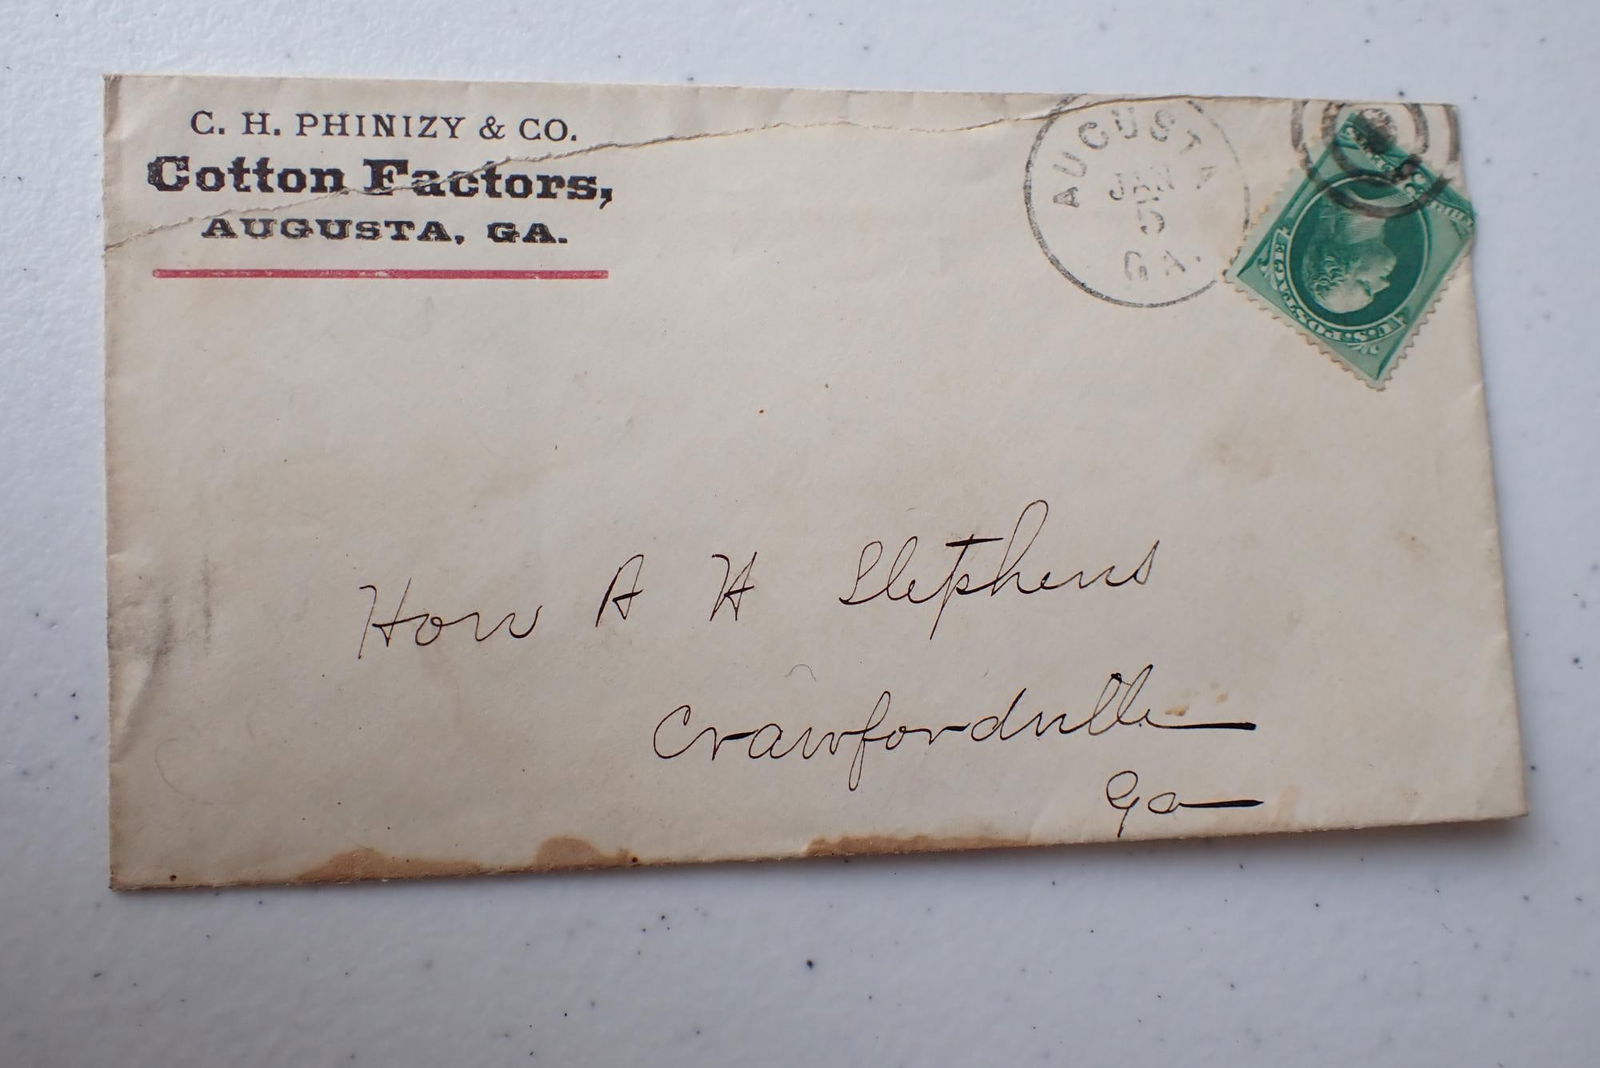 C. H. PHINIZY & CO.
Cotton Factors,
AUGUSTA, GA.
AUGUSTA
JAN
5
GA.
U.S. POSTAGE
Hon A H Stephens
Crawfordville
Ga